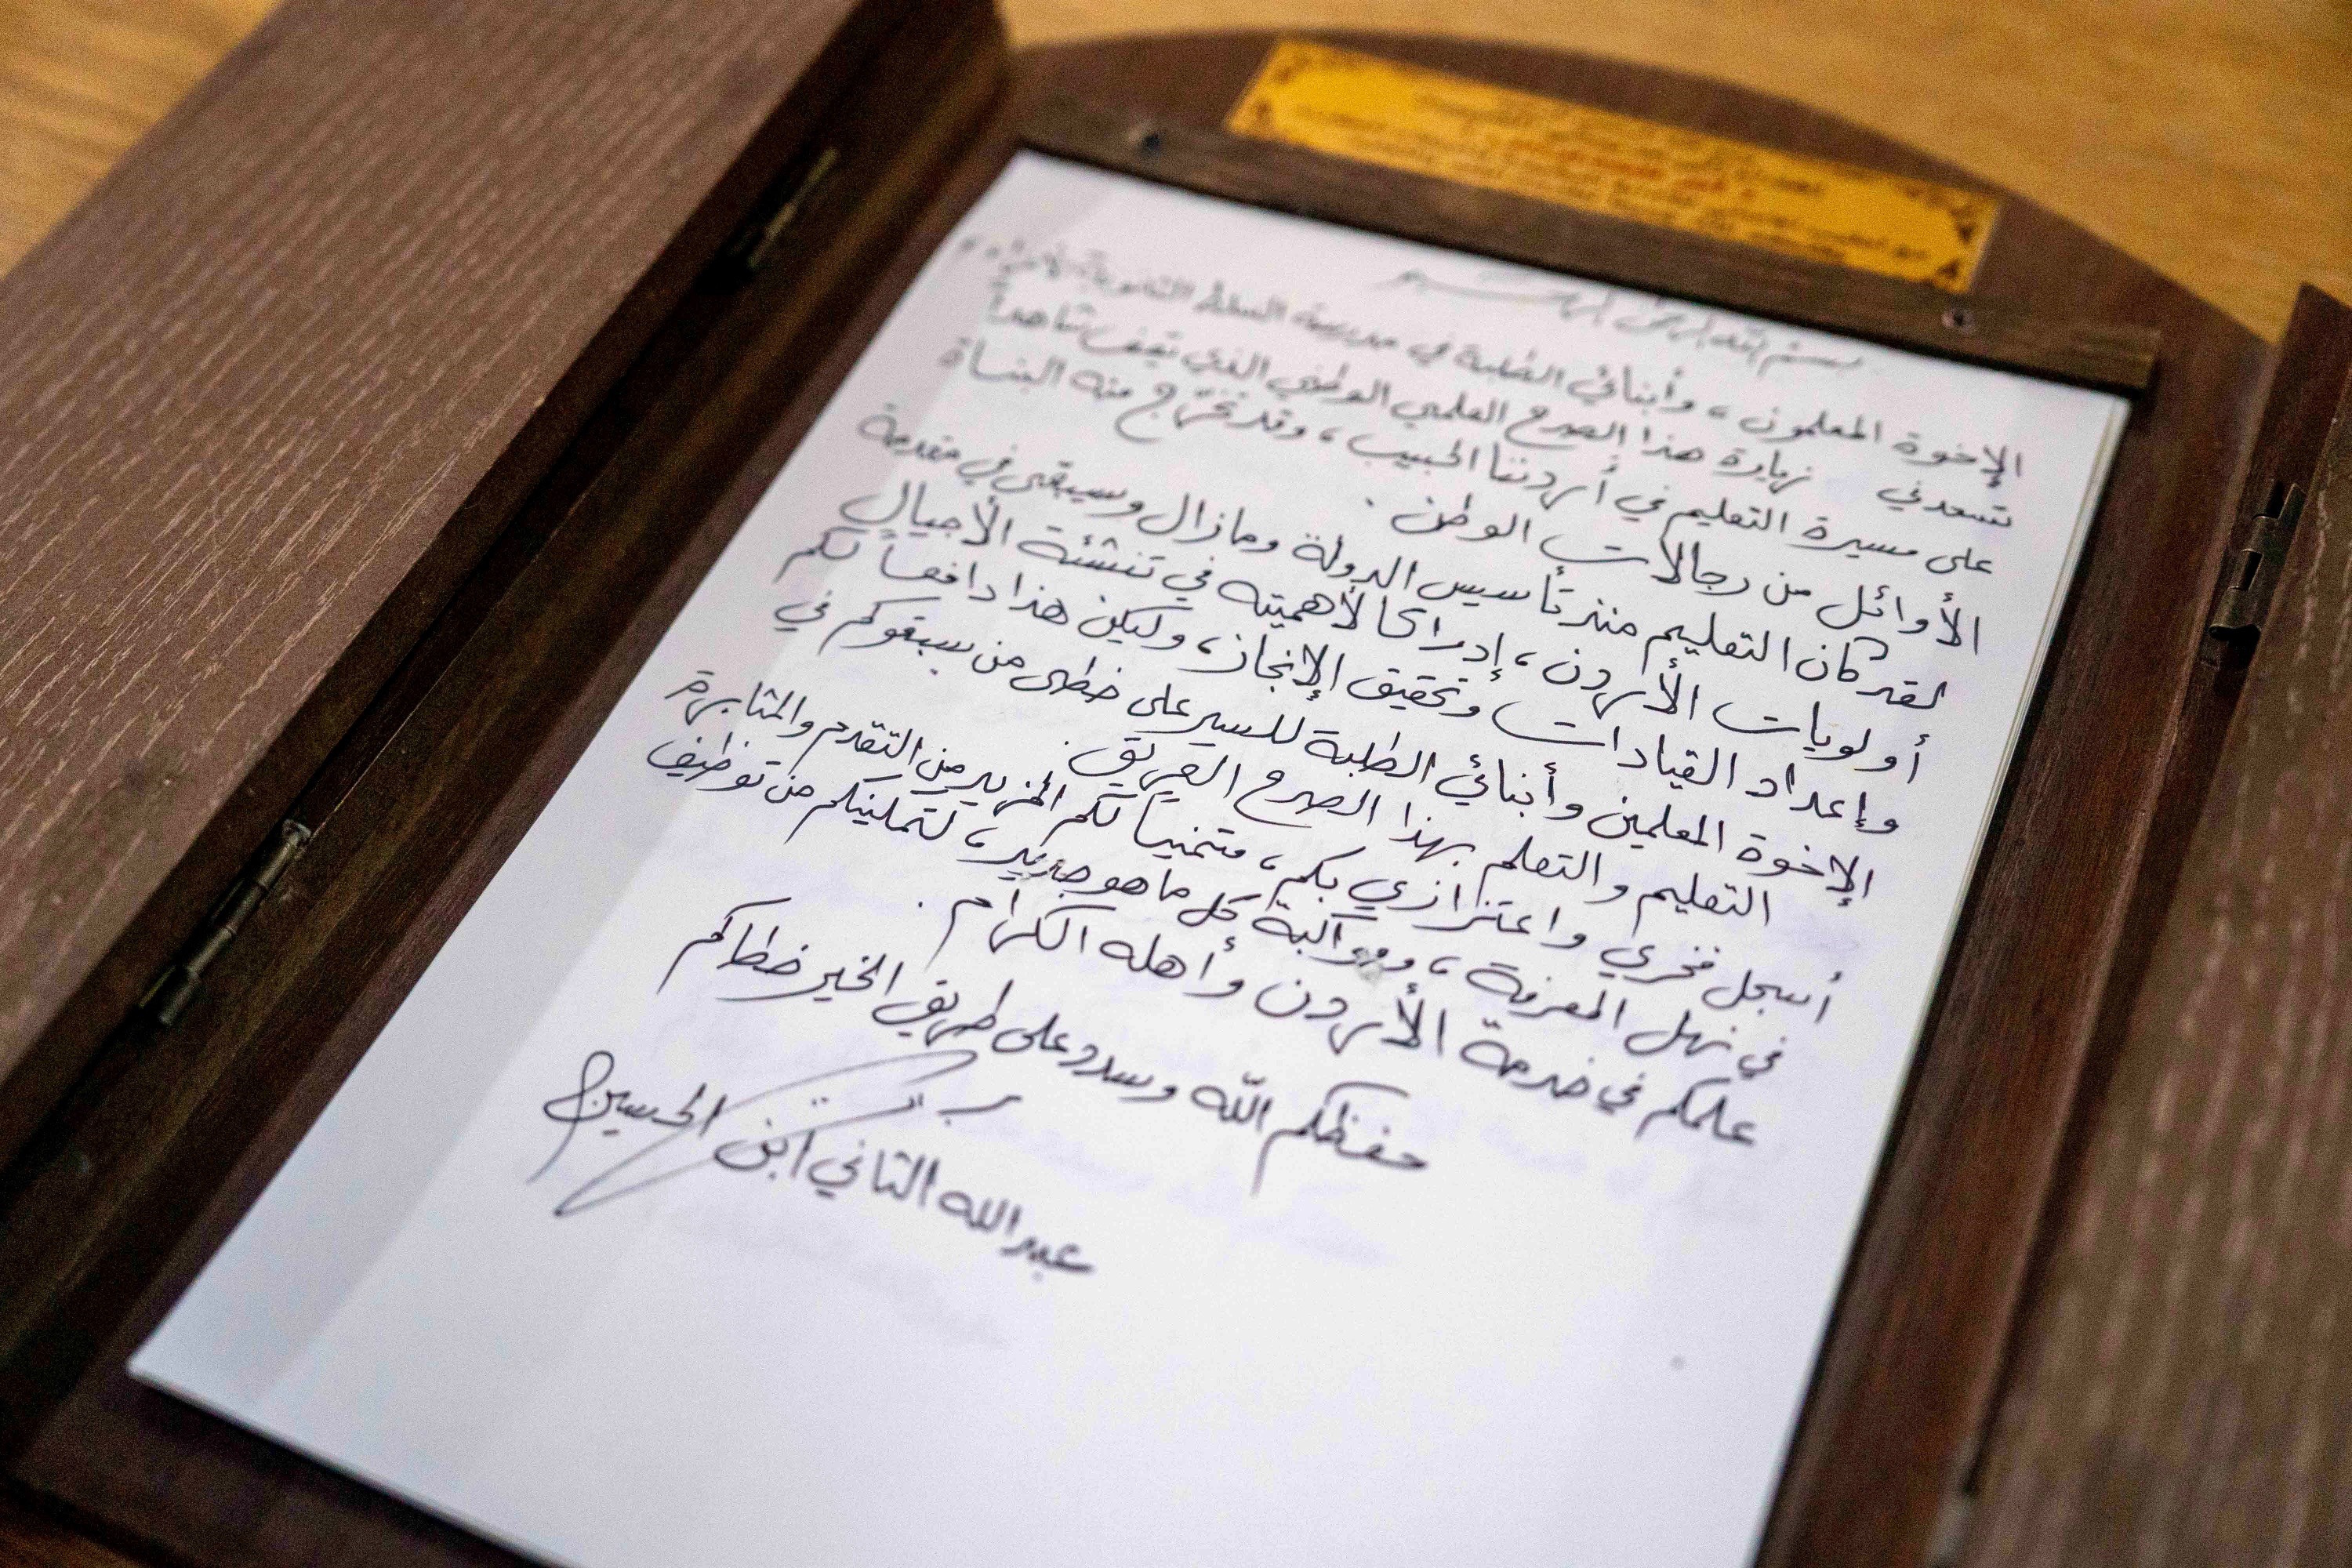 بسم الله الرحمن الرحيم
الإخوة المعلمون، وأبنائي الطلبة في مدرسة السلط الثانوية
تسعدني زيارة هذا الصرح العلمي الوطني الذي تقف شاهداً
على مسيرة التعليم في أردننا الحبيب، وقد تخرّج منه البناة
الأوائل من رجالات الوطن.
لقد كان التعليم منذ تأسيس الدولة وما زال وسيبقى في مقدمة
أولويات الأردن، إدراكا لأهميته في تنشئة الأجيال
وإعداد القيادات وتحقيق الإنجاز، وليكن هذا دافعاً لكم
الإخوة المعلمين وأبنائي الطلبة للسير على خطى من سبقوكم في
التعليم والتعلم بهذا الصرح العريق.
أسجل فخري واعتزازي بكم، متمنياً لكم المزيد من التقدم والمثابرة
في نهل المعرفة، ومواكبة كل ما هو جديد، لتمكينكم من توظيف
علمكم في خدمة الأردن وأهله الكرام.
حفظكم الله وسدد على طريق الخير خطاكم
عبدالله الثاني ابن الحسين